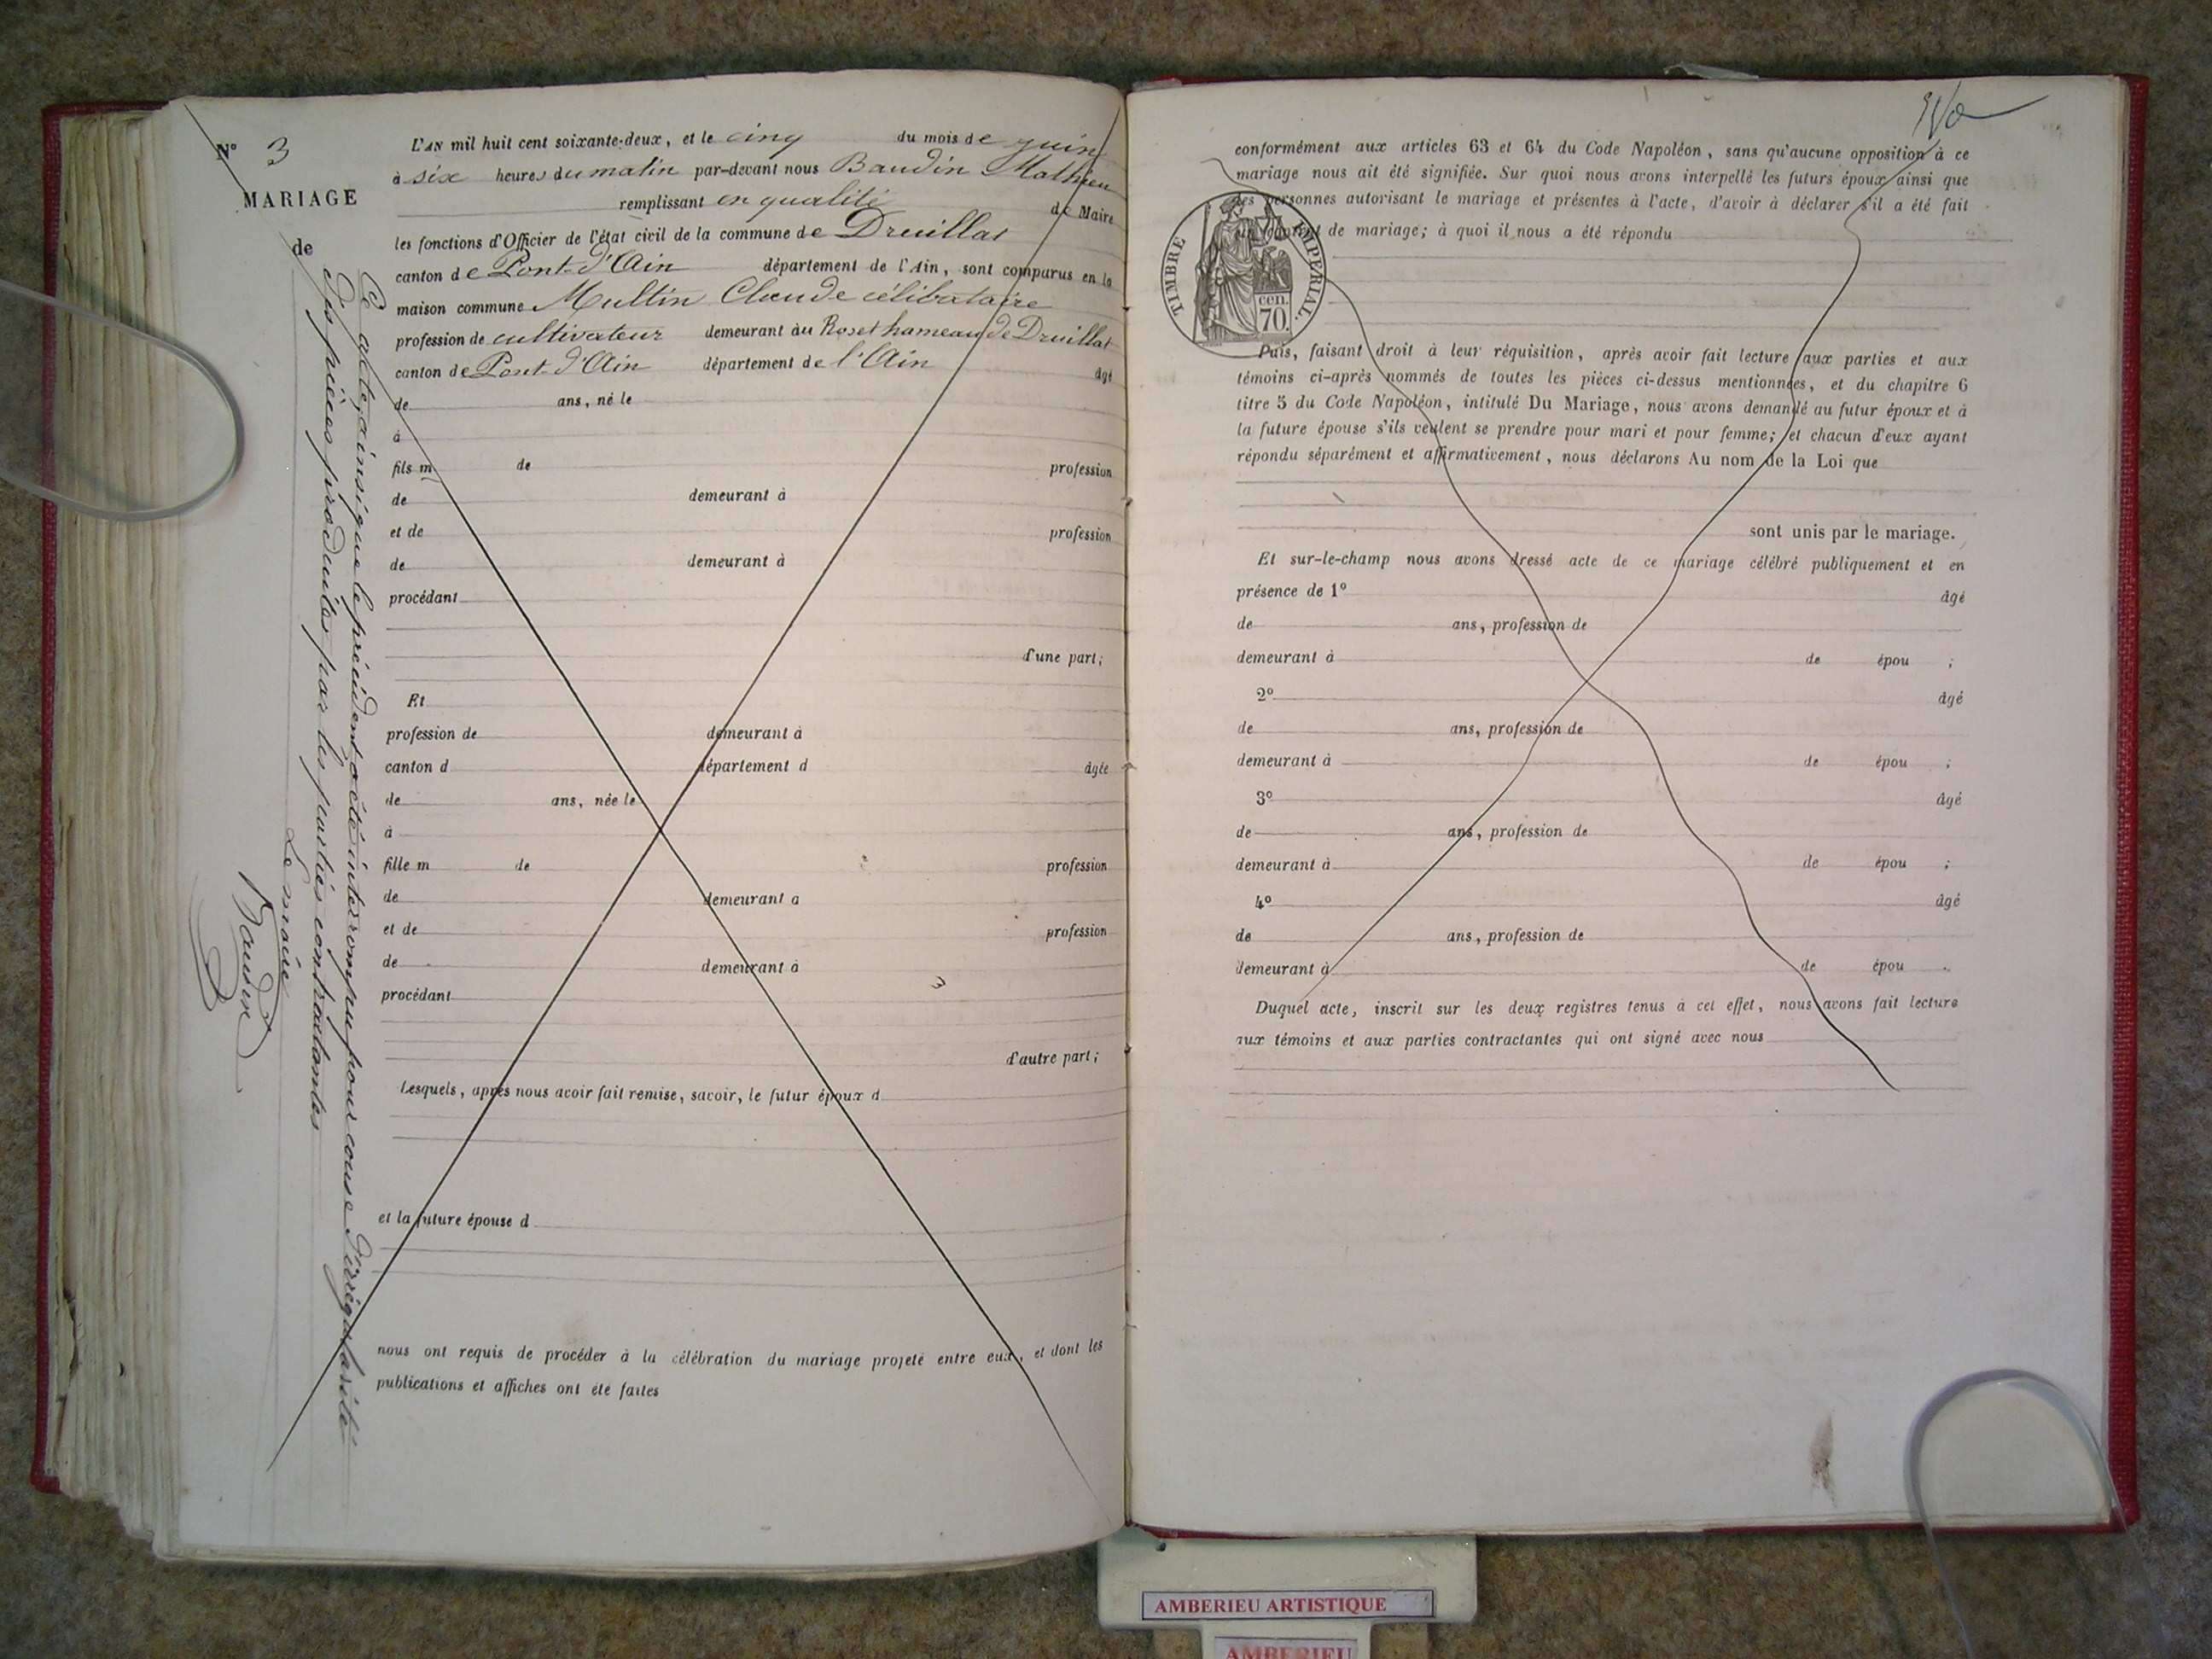 N° 3
MARIAGE
de
L'AN mil huit cent soixante-deux, et le cinq du mois de juin
à six heures du matin par-devant nous Baudin Mathieu
remplissant en qualité de Maire
les fonctions d'Officier de l'état civil de la commune de Druillat
canton de Pont-d'Ain département de l'Ain, sont comparus en la
maison commune Multin Claude célibataire
profession de cultivateur demeurant au Roset hameau de Druillat
canton de Pont-d'Ain département de l'Ain âgé
de ans, né le
à
fils m de profession
de demeurant à
et de profession
de demeurant à
procédant
d'une part;
Et
profession de demeurant à
canton d département d âgée
de ans, née le
à
fille m de profession
de demeurant a
et de profession
de demeurant à
procédant
d'autre part;
Lesquels, après nous avoir fait remise, savoir, le futur époux d
et la future épouse d
nous ont requis de procéder à la célébration du mariage projeté entre eux, et dont les
publications et affiches ont été faites
L'acte ainsi que le précédent a été interrompu pour cause d'irrégularité
des pièces produites par les parties contractantes
Le maire
Baudin
conformément aux articles 63 et 64 du Code Napoléon, sans qu'aucune opposition à ce
mariage nous ait été signifiée. Sur quoi nous avons interpellé les futurs époux ainsi que
les personnes autorisant le mariage et présentes à l'acte, d'avoir à déclarer s'il a été fait
un contrat de mariage; à quoi il nous a été répondu
TIMBRE IMPERIAL.
cen.
70.
Puis, faisant droit à leur réquisition, après avoir fait lecture aux parties et aux
témoins ci-après nommés de toutes les pièces ci-dessus mentionnées, et du chapitre 6
titre 5 du Code Napoléon, intitulé Du Mariage, nous avons demandé au futur époux et à
la future épouse s'ils veulent se prendre pour mari et pour femme; et chacun d'eux ayant
répondu séparément et affirmativement, nous déclarons Au nom de la Loi que
sont unis par le mariage.
Et sur-le-champ nous avons dressé acte de ce mariage célébré publiquement et en
présence de 1° âgé
de ans, profession de
demeurant à de épou ;
2° âgé
de ans, profession de
demeurant à de épou ;
3° âgé
de ans, profession de
demeurant à de épou ;
4° âgé
de ans, profession de
demeurant à de épou .
Duquel acte, inscrit sur les deux registres tenus à cet effet, nous avons fait lecture
aux témoins et aux parties contractantes qui ont signé avec nous
AMBERIEU ARTISTIQUE
AMBERIEU